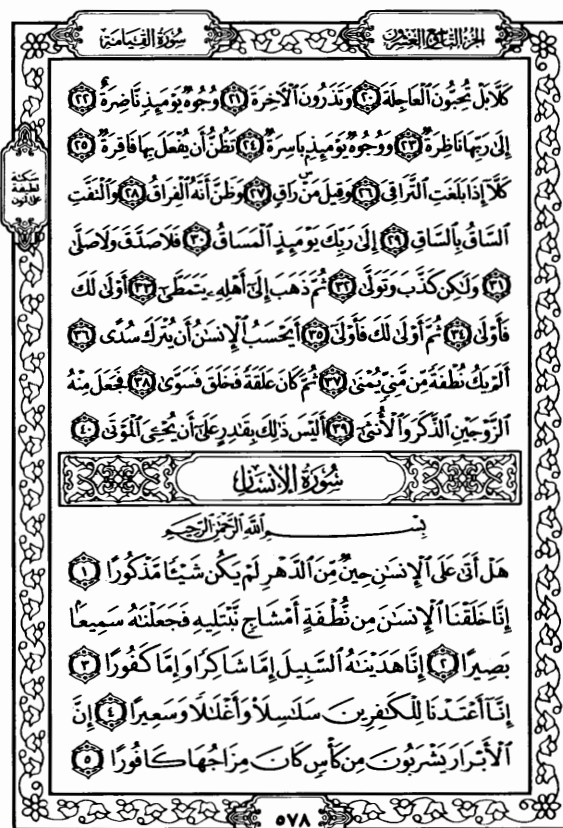 الجزء التاسع والعشرون
سورة القيامة
كَلَّا بَلْ تُحِبُّونَ ٱلْعَاجِلَةَ ۝٢٠ وَتَذَرُونَ ٱلْآخِرَةَ ۝٢١ وُجُوهٌ يَوْمَئِذٍ نَّاضِرَةٌ ۝٢٢
إِلَىٰ رَبِّهَا نَاظِرَةٌ ۝٢٣ وَوُجُوهٌ يَوْمَئِذٍۭ بَاسِرَةٌ ۝٢٤ تَظُنُّ أَن يُفْعَلَ بِهَا فَاقِرَةٌ ۝٢٥
كَلَّآ إِذَا بَلَغَتِ ٱلتَّرَاقِيَ ۝٢٦ وَقِيلَ مَنْ ۜ رَاقٍ ۝٢٧ وَظَنَّ أَنَّهُ ٱلْفِرَاقُ ۝٢٨ وَٱلْتَفَّتِ
ٱلسَّاقُ بِٱلسَّاقِ ۝٢٩ إِلَىٰ رَبِّكَ يَوْمَئِذٍ ٱلْمَسَاقُ ۝٣٠ فَلَا صَدَّقَ وَلَا صَلَّىٰ
۝٣١ وَلَٰكِن كَذَّبَ وَتَوَلَّىٰ ۝٣٢ ثُمَّ ذَهَبَ إِلَىٰٓ أَهْلِهِۦ يَتَمَطَّىٰٓ ۝٣٣ أَوْلَىٰ لَكَ
فَأَوْلَىٰ ۝٣٤ ثُمَّ أَوْلَىٰ لَكَ فَأَوْلَىٰٓ ۝٣٥ أَيَحْسَبُ ٱلْإِنسَٰنُ أَن يُتْرَكَ سُدًى ۝٣٦
أَلَمْ يَكُ نُطْفَةً مِّن مَّنِيٍّ يُمْنَىٰ ۝٣٧ ثُمَّ كَانَ عَلَقَةً فَخَلَقَ فَسَوَّىٰ ۝٣٨ فَجَعَلَ مِنْهُ
ٱلزَّوْجَيْنِ ٱلذَّكَرَ وَٱلْأُنثَىٰٓ ۝٣٩ أَلَيْسَ ذَٰلِكَ بِقَٰدِرٍ عَلَىٰٓ أَن يُحْـِۧيَ ٱلْمَوْتَىٰ ۝٤٠
سكتة
لطيفة
على النون
سورة الإنسان
بِسْمِ ٱللَّهِ ٱلرَّحْمَٰنِ ٱلرَّحِيمِ
هَلْ أَتَىٰ عَلَى ٱلْإِنسَٰنِ حِينٌ مِّنَ ٱلدَّهْرِ لَمْ يَكُن شَيْـًٔا مَّذْكُورًا ۝١
إِنَّا خَلَقْنَا ٱلْإِنسَٰنَ مِن نُّطْفَةٍ أَمْشَاجٍ نَّبْتَلِيهِ فَجَعَلْنَٰهُ سَمِيعًۢا
بَصِيرًا ۝٢ إِنَّا هَدَيْنَٰهُ ٱلسَّبِيلَ إِمَّا شَاكِرًا وَإِمَّا كَفُورًا ۝٣
إِنَّآ أَعْتَدْنَا لِلْكَٰفِرِينَ سَلَٰسِلَا۟ وَأَغْلَٰلًا وَسَعِيرًا ۝٤ إِنَّ
ٱلْأَبْرَارَ يَشْرَبُونَ مِن كَأْسٍ كَانَ مِزَاجُهَا كَافُورًا ۝٥
٥٧٨